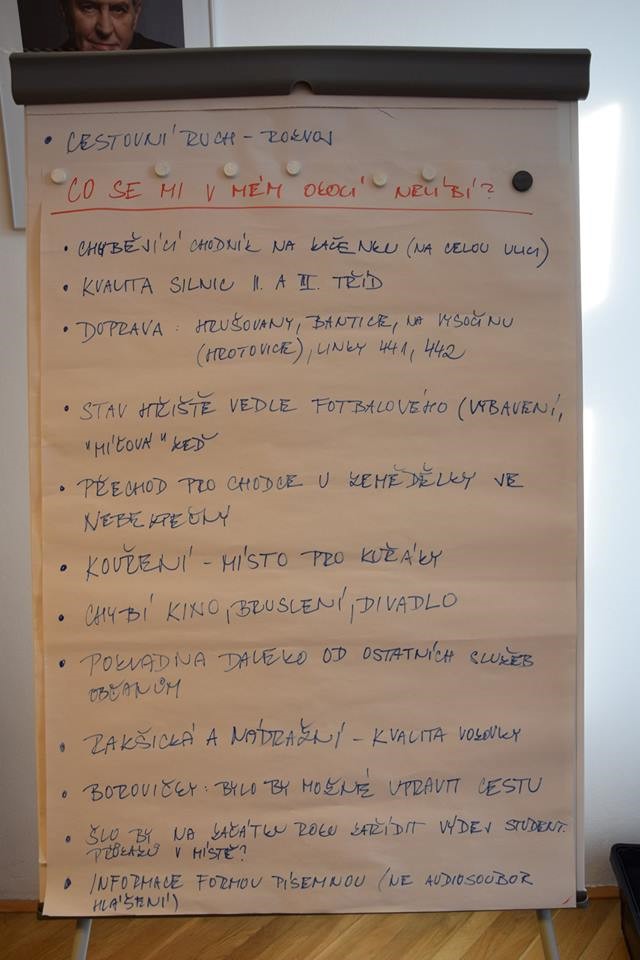 • CESTOVNÍ RUCH - ROZVOJ
CO SE MI V MÉM OKOLÍ NELÍBÍ?
• CHYBĚJÍCÍ CHODNÍK NA KAČENKU (NA CELOU ULICI)
• KVALITA SILNIC II. A III. TŘÍD
• DOPRAVA: HRUŠOVANY, BANTICE, NA VYSOČINU
(HROTOVICE), LINKY 441, 442
• STAV HŘIŠTĚ VEDLE FOTBALOVÉHO (VYBAVENÍ,
"MÍČOVÁ" ZEĎ
• PŘECHOD PRO CHODCE U ZEMĚDĚLKY JE
NEBEZPEČNÝ
• KOUŘENÍ - MÍSTO PRO KUŘÁKY
• CHYBÍ KINO, BRUSLENÍ, DIVADLO
• POKLADNA DALEKO OD OSTATNÍCH SLUŽEB
OBČANŮM
• RAKŠICKÁ A NÁDRAŽNÍ - KVALITA VOZOVKY
• BOROVIČKY: BYLO BY MOŽNÉ UPRAVIT CESTU
• ŠLO BY NA ZAČÁTKU ROKU ZAŘÍDIT VÝDEJ STUDENT.
PRŮKAZŮ V MÍSTĚ?
• INFORMACE FORMOU PÍSEMNOU (NE AUDIOSOUBOR
HLÁŠENÍ)